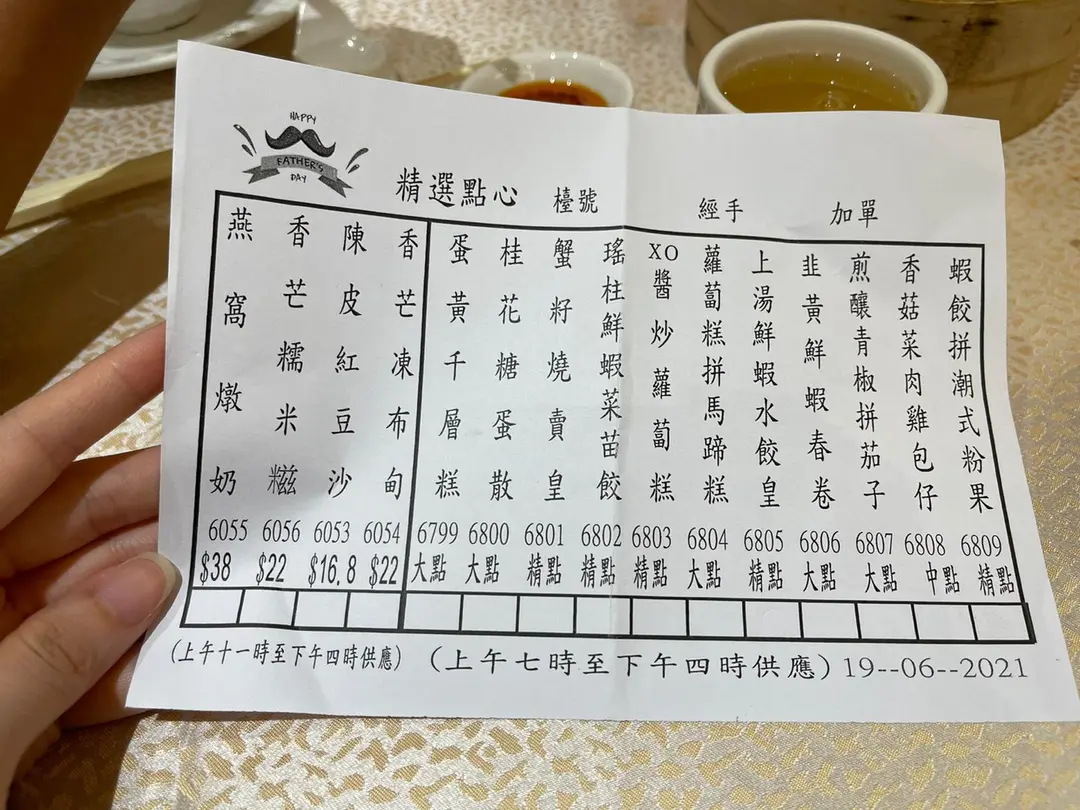 HAPPY
FATHER'S
DAY
精選點心 檯號 經手 加單
蝦餃拼潮式粉果
香菇菜肉雞包仔
煎釀青椒拼茄子
韭黃鮮蝦春卷
上湯鮮蝦水餃皇
蘿蔔糕拼馬蹄糕
XO醬炒蘿蔔糕
瑤柱鮮蝦菜苗餃
蟹籽燒賣皇
桂花糖蛋散
蛋黃千層糕
香芒凍布甸
陳皮紅豆沙
香芒糯米糍
燕窩燉奶
6055 6056 6053 6054 6799 6800 6801 6802 6803 6804 6805 6806 6807 6808 6809
$38 $22 $16.8 $22 大點 大點 精點 精點 精點 大點 精點 大點 大點 中點 精點
(上午十一時至下午四時供應) (上午七時至下午四時供應) 19--06--2021